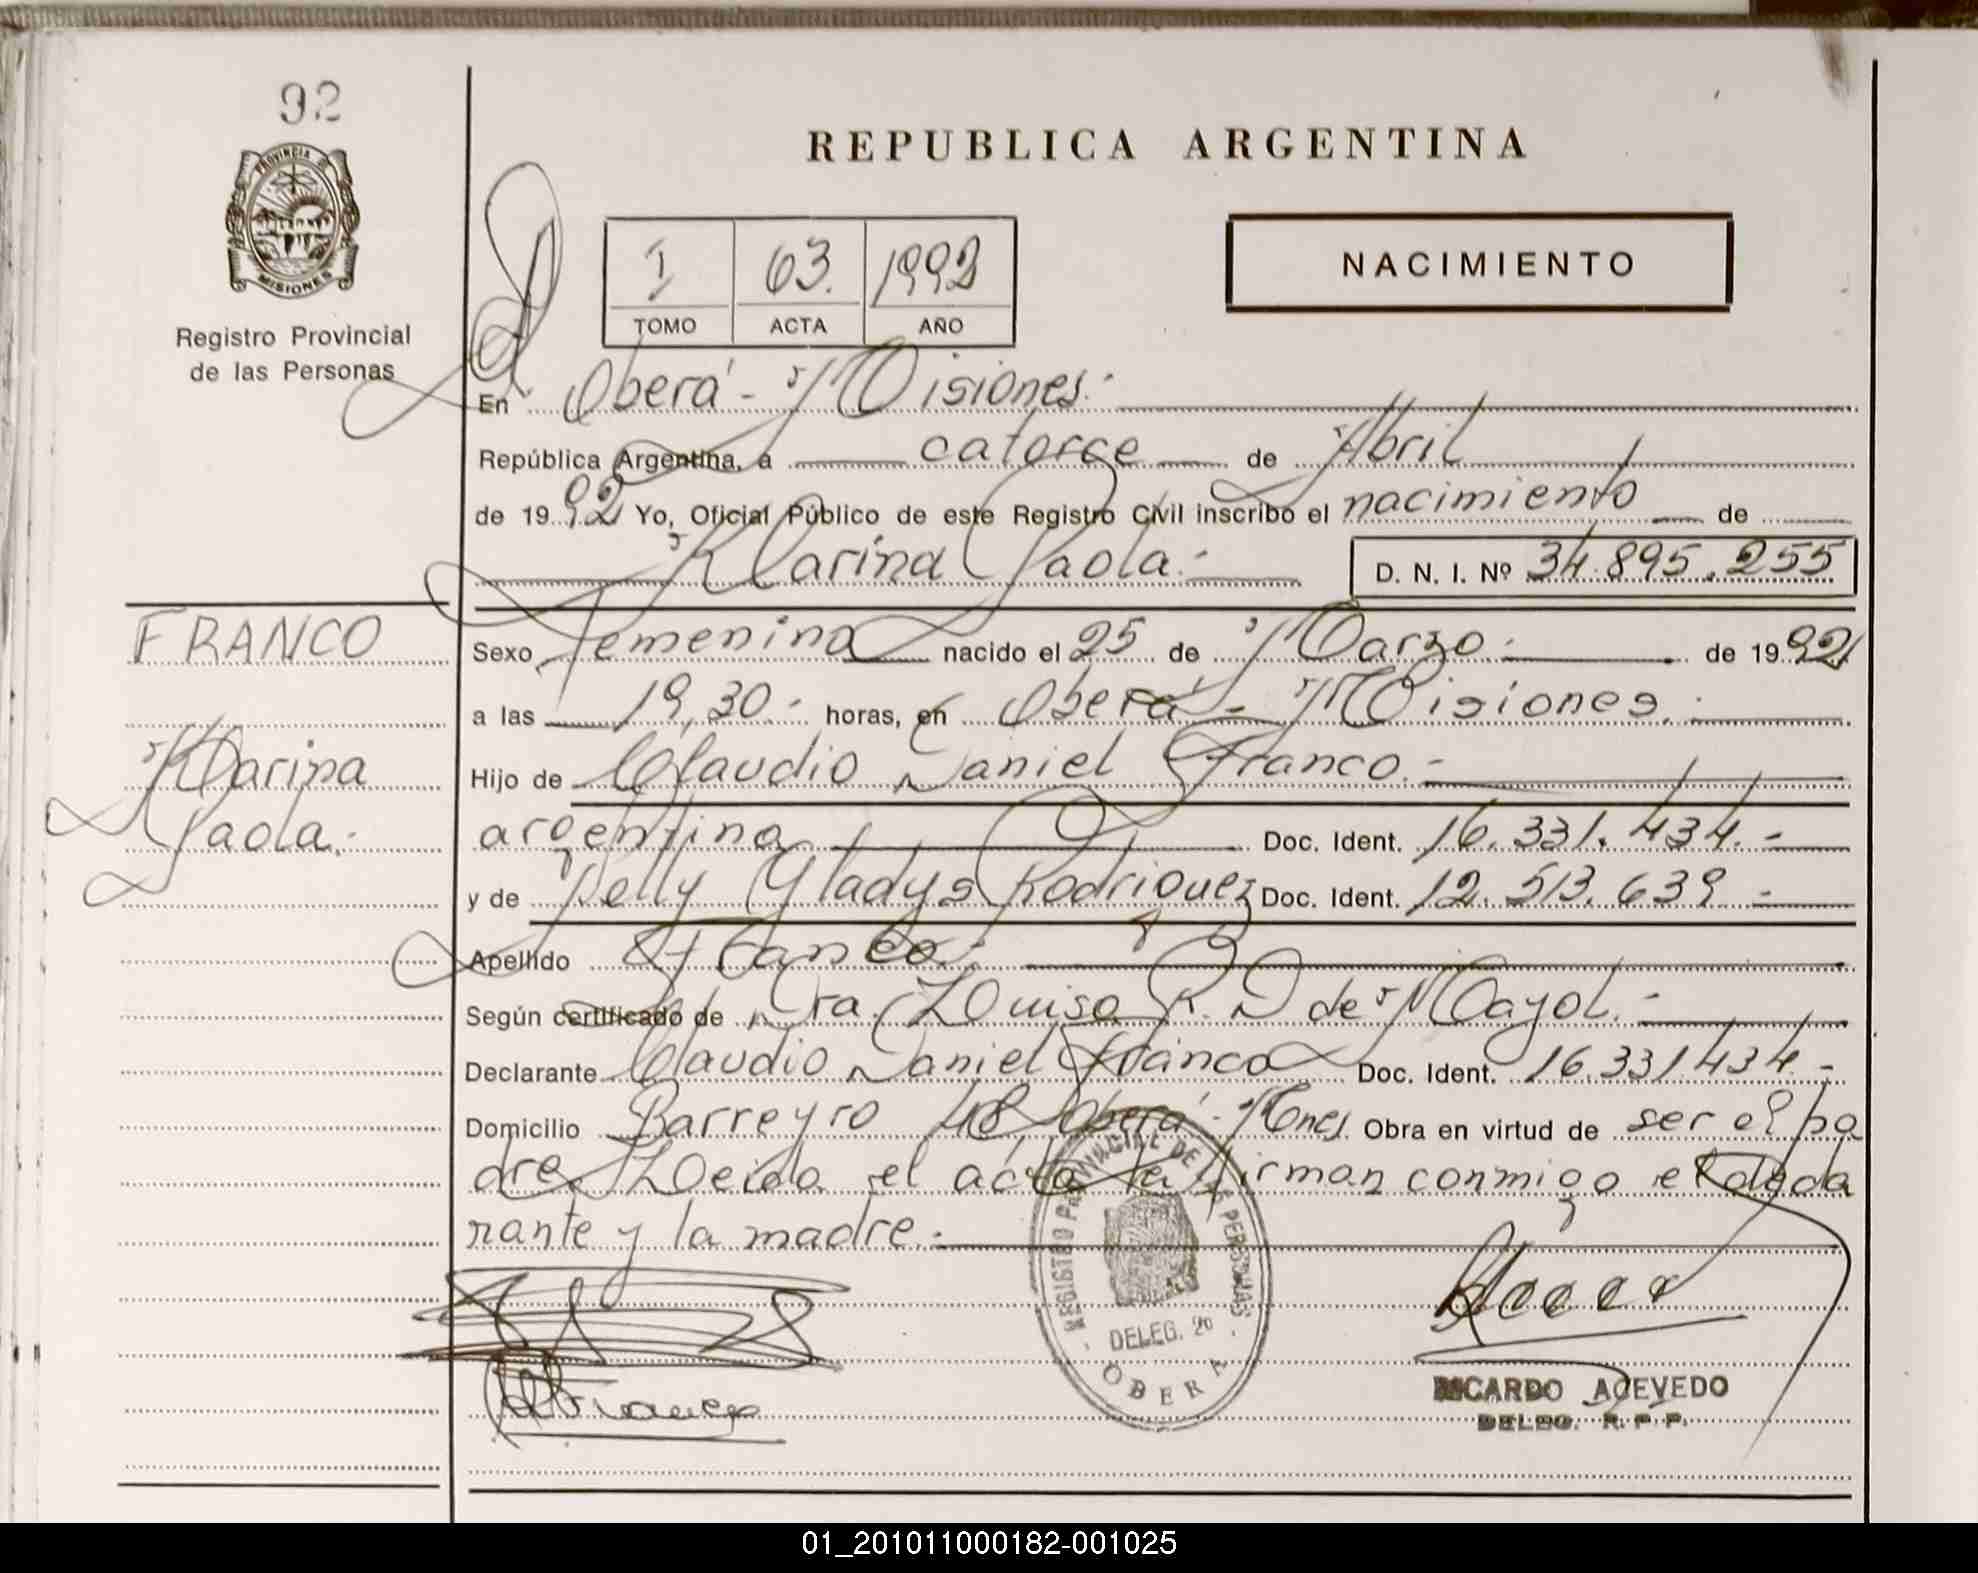 92
PROVINCIA DE
MISIONES
Registro Provincial
de las Personas
REPUBLICA ARGENTINA
I 63. 1992
TOMO ACTA AÑO
NACIMIENTO
En Oberá - Misiones.-
República Argentina, a catorce de Abril
de 1992 Yo, Oficial Público de este Registro Civil inscribo el nacimiento de
Karina Paola.- D. N. I. Nº 34.895.255
FRANCO
Karina
Paola.-
Sexo Femenino nacido el 25 de Marzo.- de 1992
a las 19,30.- horas, en Oberá - Misiones.-
Hijo de Claudio Daniel Franco.-
argentino Doc. Ident. 16.331.434.-
y de Nelly Gladys Rodriguez Doc. Ident. 12.513.639.-
Apellido Franco.-
Según certificado de Dra. Luisa R. D de Mayol.-
Declarante Claudio Daniel Franco Doc. Ident. 16.331434.-
Domicilio Barreyro 48, Oberá - Mnes. Obra en virtud de ser el pa
dre. Leida el acta la firman conmigo el
rante y la madre.-
REGISTRO PROVINCIAL DE LAS PERSONAS
DELEG. 20
OBERA
Franco
RICARDO ACEVEDO
DELEG. R. P. P.
01_201011000182-001025